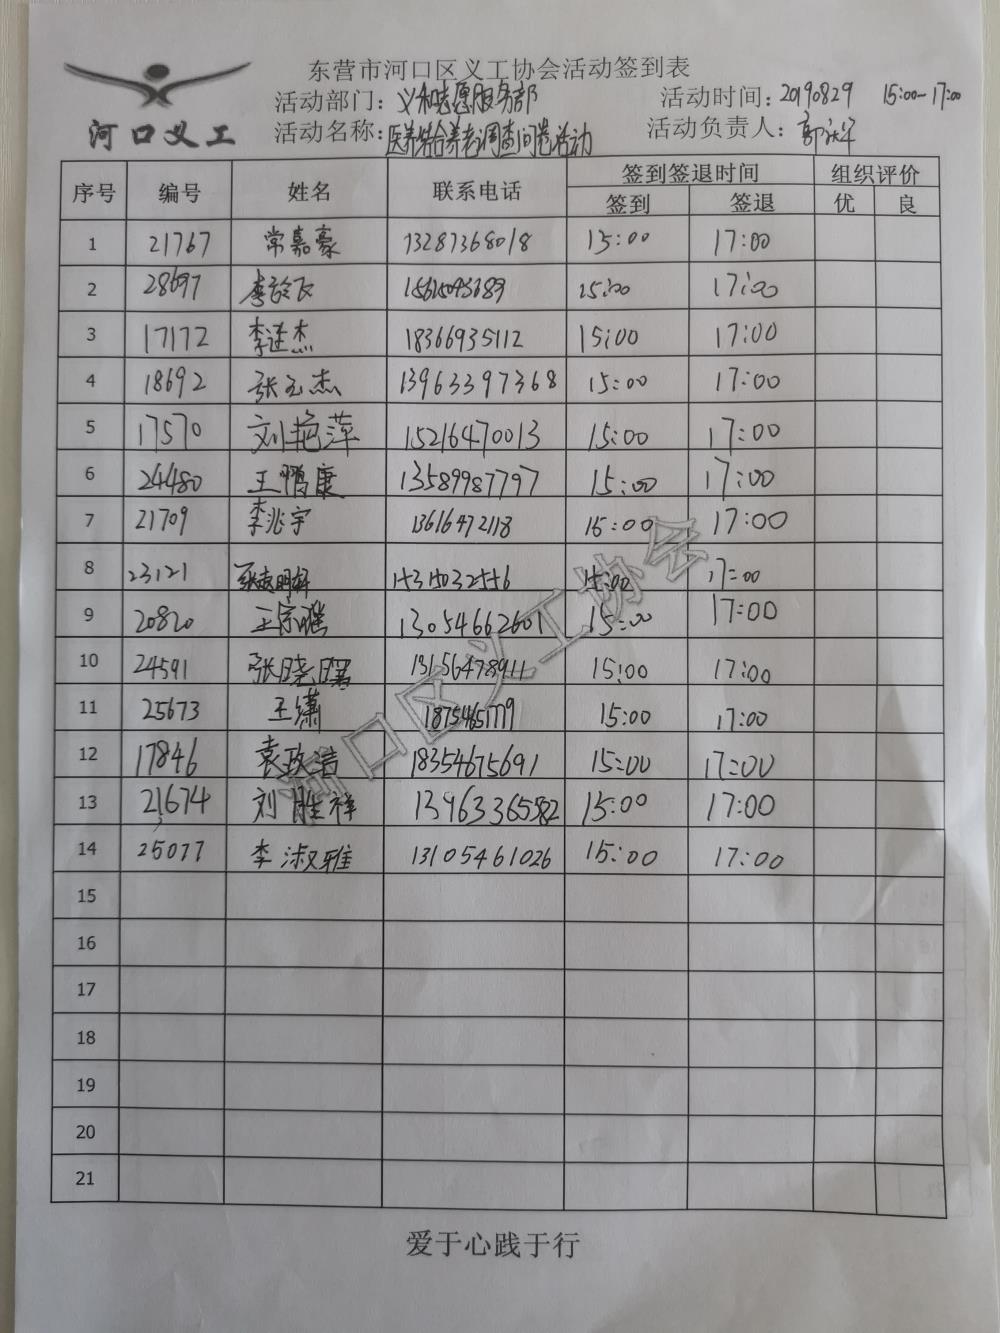 东营市河口区义工协会活动签到表
活动部门：义和志愿服务部 活动时间：20190829 15:00-17:00
河口义工
活动名称：医养结合养老调查问卷活动 活动负责人：
序号 编号 姓名 联系电话 签到签退时间 组织评价
签到 签退 优 良
1 21767 常嘉豪 13287368018 15:00 17:00
2 28697 15:00 17:00
3 17172 李述杰 18366935112 15:00 17:00
4 18692 张玉杰 13963397368 15:00 17:00
5 17570 刘艳萍 15216470013 15:00 17:00
6 24480 王鹏康 13589987797 15:00 17:00
7 21709 李兆宇 13616472118 15:00 17:00
8 23121 15315032556 15:00 17:00
9 20820 13054662601 15:00 17:00
10 24591 张晓曙 13156478911 15:00 17:00
11 25673 王潇 18754651779 15:00 17:00
12 17846 袁政洁 18354675691 15:00 17:00
13 21674 刘胜祥 13963365582 15:00 17:00
14 25077 李淑雅 13105461026 15:00 17:00
15
16
17
18
19
20
21
河口区义工协会
爱于心践于行